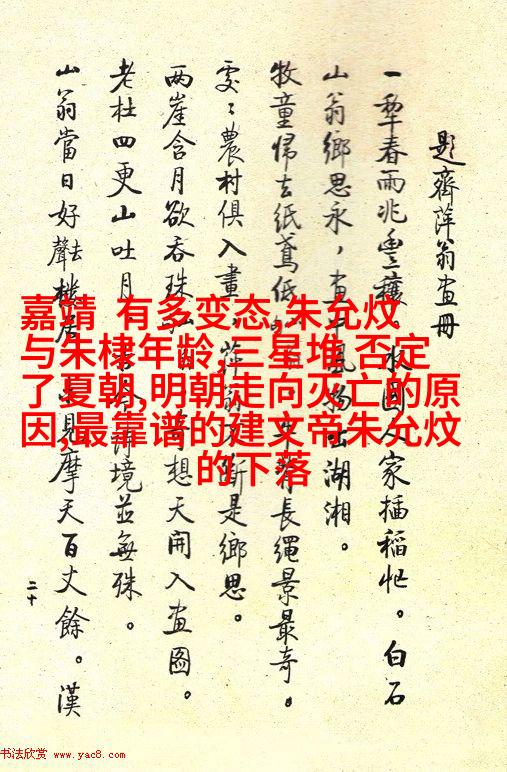 題齊萍翁畫冊
一犁春雨兆豐穰。水國人家插稻忙。白石
山翁鄉思永,畫中風物出湖湘。
牧童歸去紙鳶低 牛背長繩景最奇。
處〻農村俱入畫,萍翁不斷是鄉思。
兩崖含月欲吞珠 奇想天開入畫圖。
老杜四更山吐月 詩境並無殊。
山翁當日好去聲樓居 見摩天百丈餘。漢
二十
嘉靖 有多变态,朱允炆
与朱棣年龄,三星堆 否定
了夏朝,明朝走向灭亡的原
因,最靠谱的建文帝朱允炆
的下落
书法欣赏 www.yac8.com